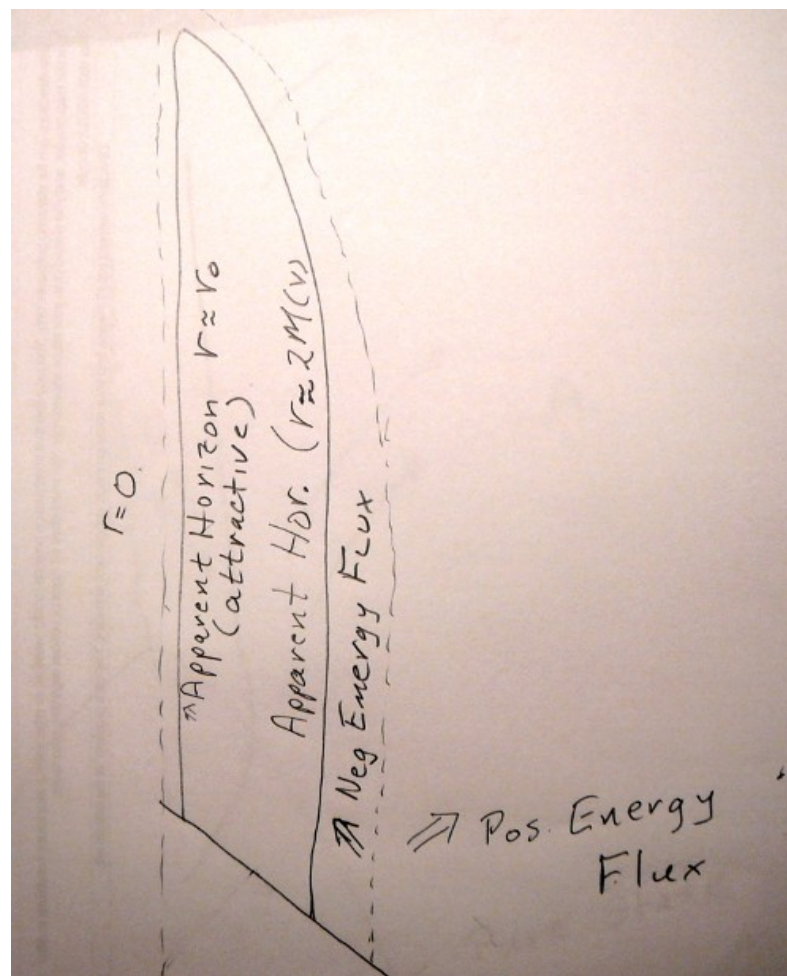 r=0
"Apparent Horizon r≈r₀
(attractive)
Apparent Hor. (r≈2M(v))
Neg Energy Flux
Pos. Energy
Flux